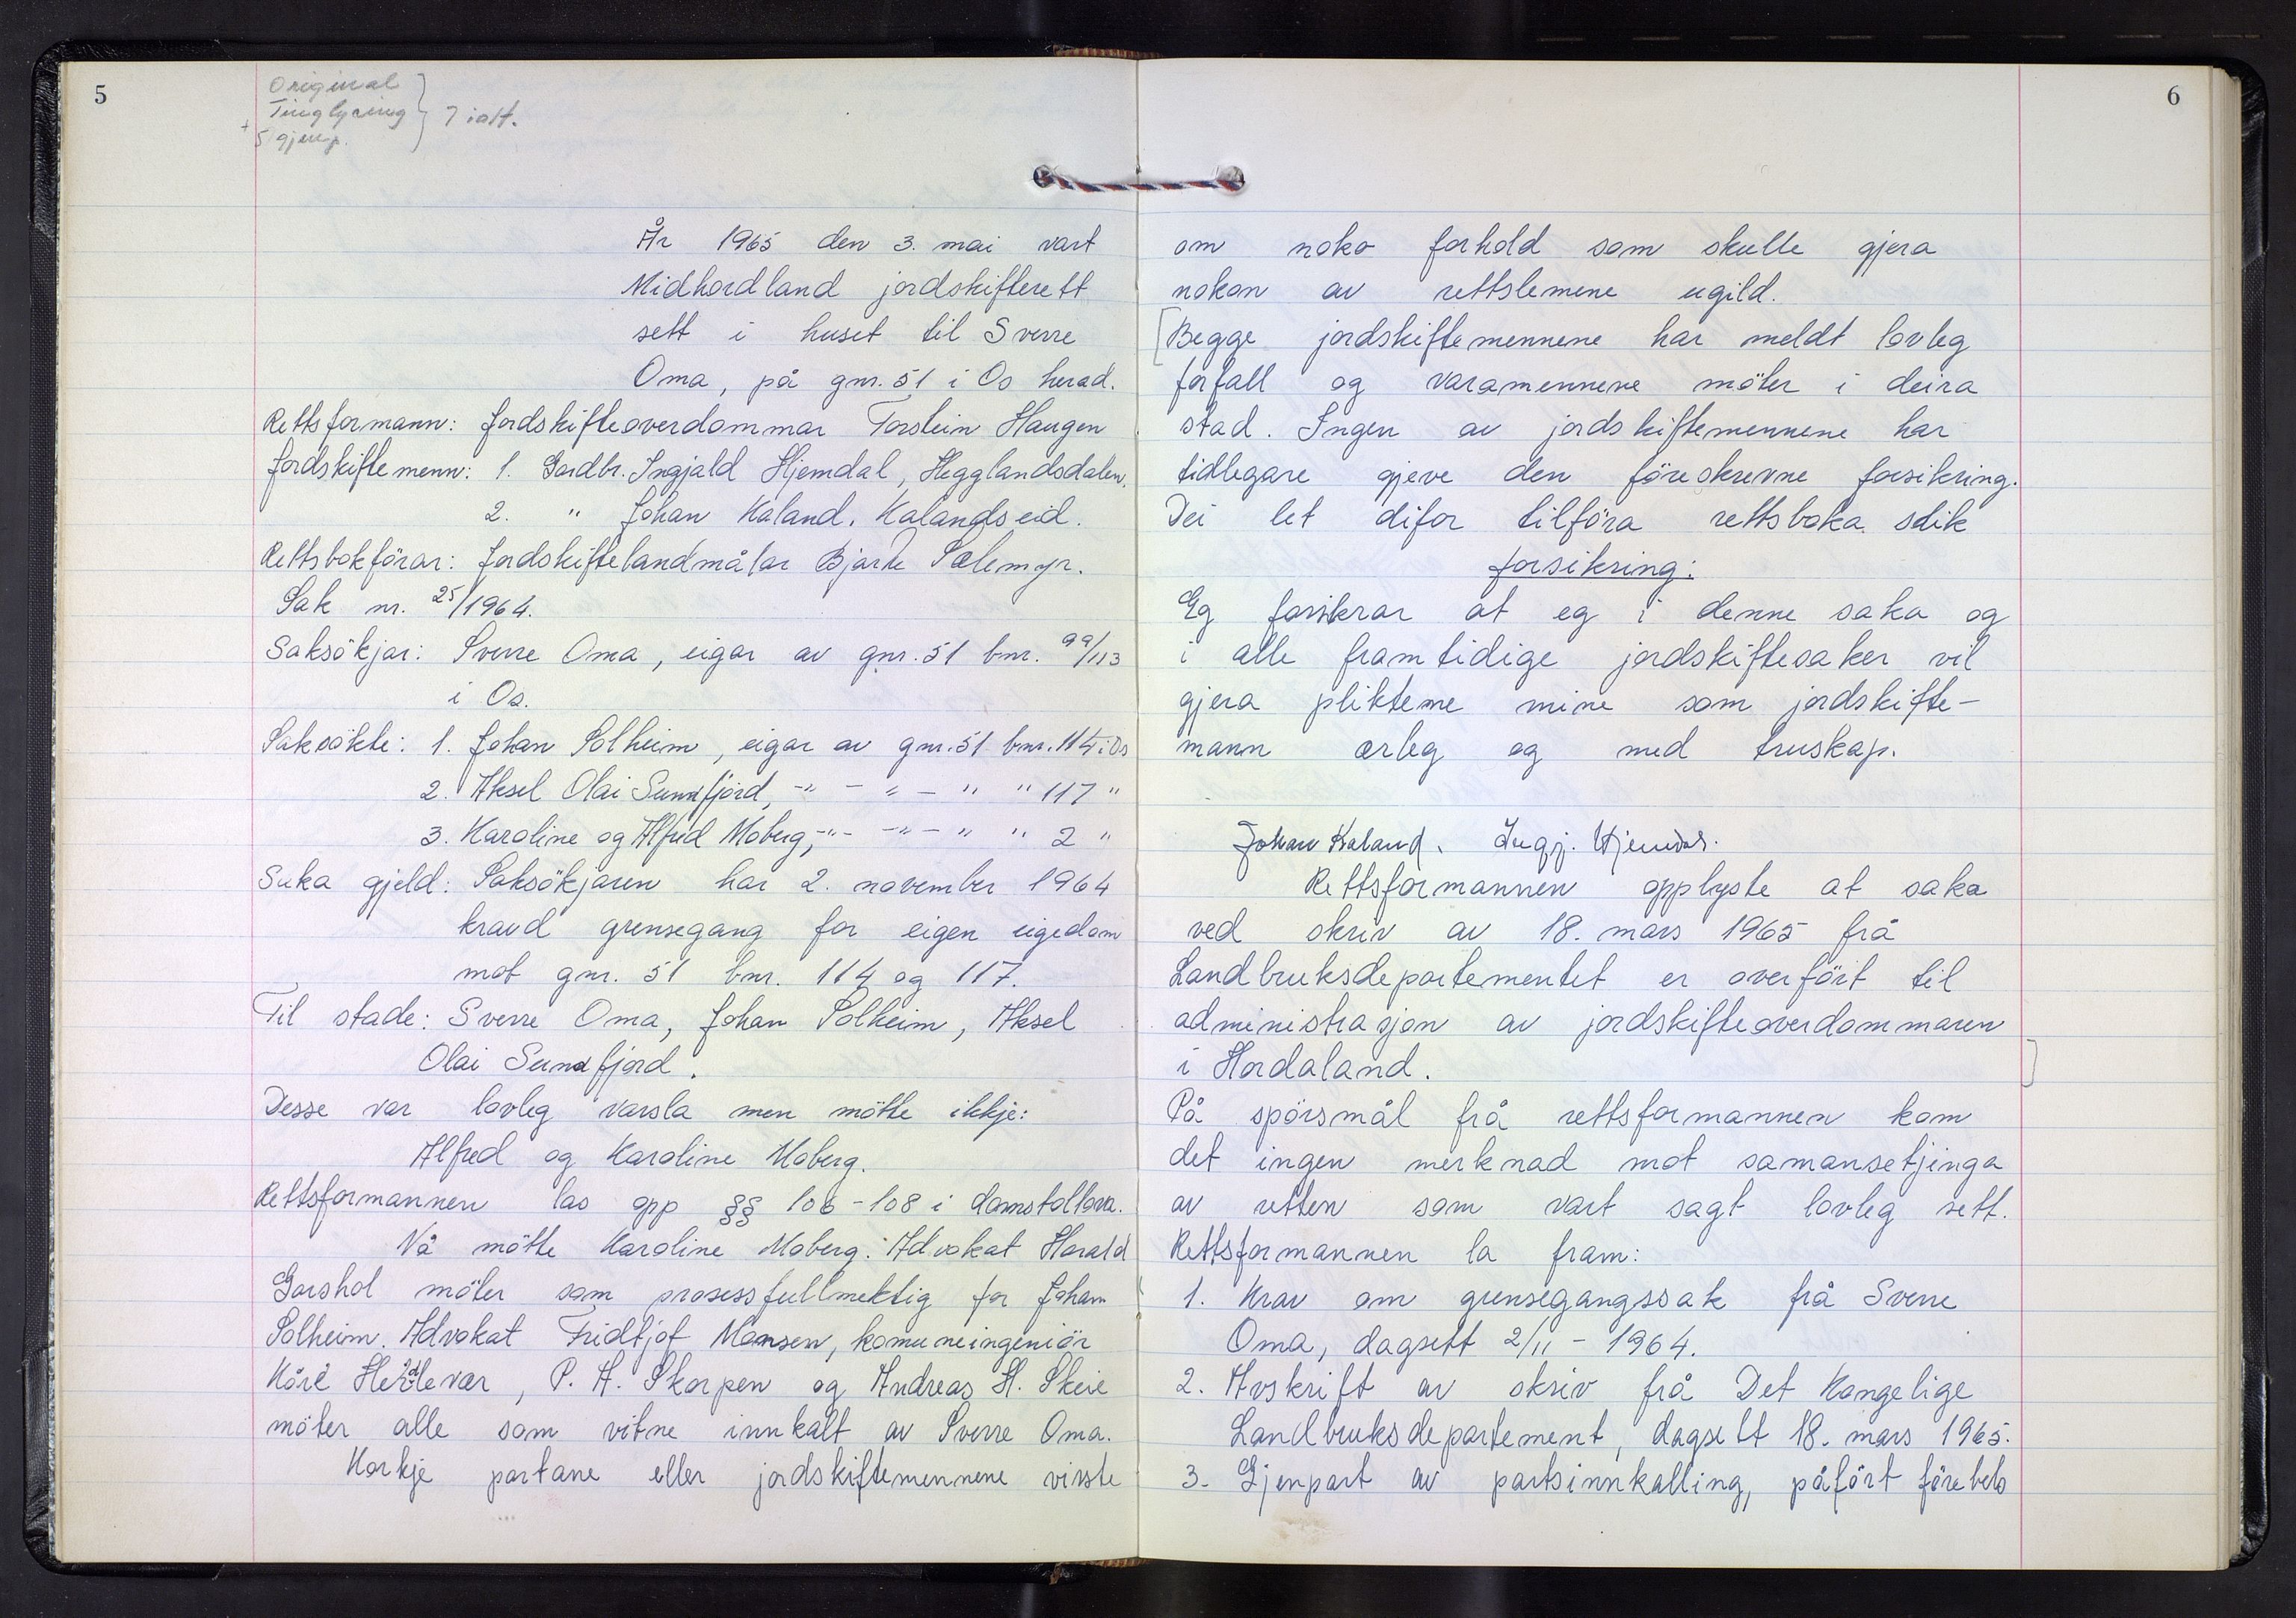 5
Original
Tinglysing } 7 ialt.
+ 5 gjenp.
År 1965 den 3. mai vart
Midhordland jordskifterett
sett i huset til Sverre
Oma, på gnr. 51 i Os herad.
Rettsformann: Jordskifteoverdommar Torstein Haugen
Jordskiftemenn: 1. Gardbr. Ingjald Hjemdal, Hegglandsdalen.
2. " Johan Kaland, Kalandseid.
Rettsbokförar: Jordskiftelandmålar Bjarte Sælemyr.
Sak nr. 25/1964.
Saksökjar: Sverre Oma, eigar av gnr. 51 bnr. 99/113
i Os.
Saksökte: 1. Johan Solheim, eigar av gnr. 51 bnr. 114 i Os
2. Aksel Olai Sundfjord, -"- -"- " " 117 "
3. Karoline og Alfred Moberg, -"- -"- " " 2 "
Saka gjeld: Saksökjaren har 2. november 1964
kravd grensegang for eigen eigedom
mot gnr. 51 bnr. 114 og 117.
Til stade: Sverre Oma, Johan Solheim, Aksel
Olai Sundfjord.
Desse var lovleg varsla men mötte ikkje:
Alfred og Karoline Moberg.
Rettsformannen las opp §§ 106-108 i domstollova.
Nå mötte Karoline Moberg. Advokat Harald
Garshol möter som prosessfullmektig for Johan
Solheim. Advokat Fridtjof Monsen, komuneingeniör
Kåre Herdlevær, P. A. Skorpen og Andreas H. Skeie
möter alle som vitne innkalt av Sverre Oma.
Korkje partane eller jordskiftemennene visste
6
om noko forhold som skulle gjera
nokon av rettslemene ugild.
[Begge jordskiftemennene har meldt lovleg
forfall og varamennene möter i deira
stad. Ingen av jordskiftemennene har
tidlegare gjeve den föreskrevne forsikring.
Dei let difor tilföra rettsboka slik
forsikring:
Eg forsikrar at eg i denne saka og
i alle framtidige jordskiftesaker vil
gjera pliktene mine som jordskifte-
mann ærleg og med truskap.
Johan Kaland. Ingj. Hjemdal.
Rettsformannen opplyste at saka
ved skriv av 18. mars 1965 frå
Landbruksdepartementet er overfört til
administrasjon av jordskifteoverdommaren
i Hordaland. ]
På spörsmål frå rettsformannen kom
det ingen merknad mot samansetjinga
av retten som vart sagt lovleg sett.
Rettsformannen la fram:
1. Krav om grensegangssak frå Sverre
Oma, dagsett 2/11 - 1964.
2. Avskrift av skriv frå Det Kongelige
Landbruksdepartement, dagsett 18. mars 1965.
3. Gjenpart av partsinnkalling, påfört förebels